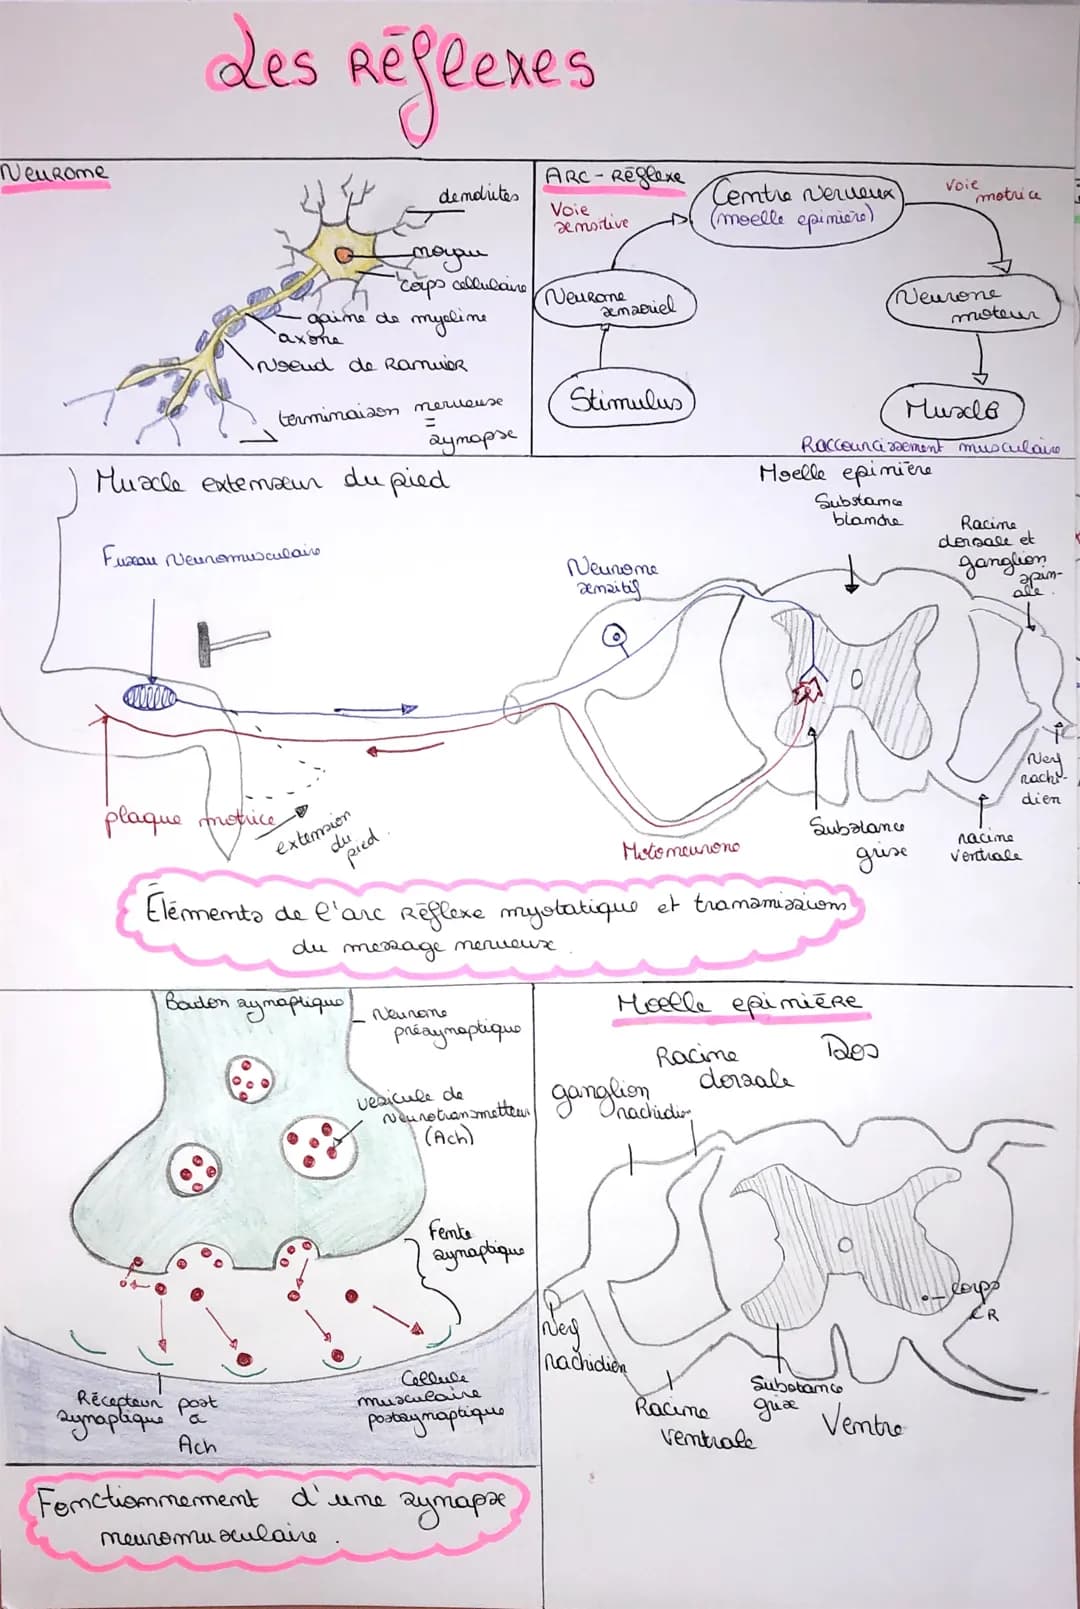 Les Réflexes
Neurone
dendrites
noyau
corps cellulaire
gaine de myeline
axone
Noeud de Ranvier
terminaison nerveuse
=
synapse
ARC-Réflexe
Voie
sensitive
Centre Nerveux
(moelle epinière)
Voie
motrice
Neurone
sensoriel
Neurone
moteur
Stimulus
Muscle
Raccourcissement musculaire
Muscle extenseur du pied
Fuseau Neuromusculaire
Neurone
sensitif
Moelle epinière
Substance
blanche
Racine
dorsale et
ganglion
spin-
ale.
plaque motrice
extension
du
pied.
Motoneurone
Substance
grise
racine
ventrale
Nerf
rachi-
dien
Élements de l'arc Réflexe myotatique et transmissions
du message nerveux.
Bouton synaptique
Neurone
présynaptique
vesicule de
Neurotransmetteur
(Ach)
Fente
synaptique
Récepteur post
synaptique a
Ach
Cellule
musculaire
postsynaptique
Fonctionnement d'une synapse
neuromusculaire.
Moelle epinière
Racine
dorsale
Dos
ganglion
rachidien
Nerf
rachidien
Racine
ventrale
Substance
grise
Ventre
corps
CR